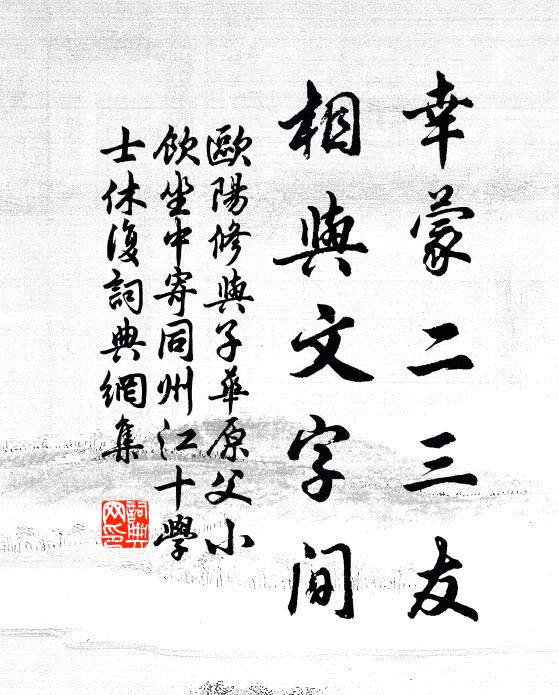 幸蒙二三友
相與文字間
歐陽修與子華原父小
飲坐中寄同州江十學
士休復詞典網集
詞典
网印